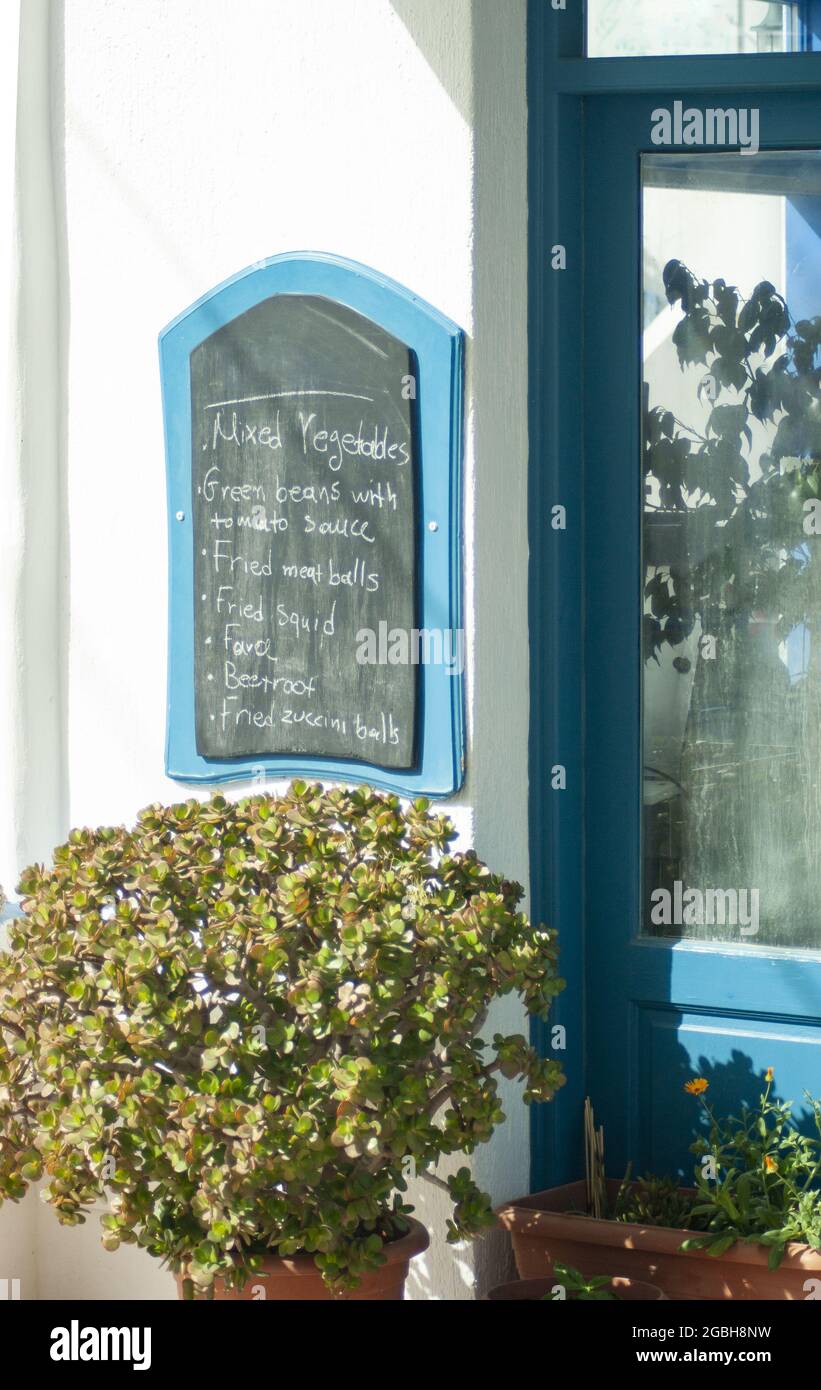 alamy
. Mixed Vegetables
· Green beans with
tomato sauce
· Fried meat balls
· Fried squid
· Fava
· Beetroot
· Fried zuccini balls
alamy
alamy
alamy
Image ID: 2GBH8NW
www.alamy.com